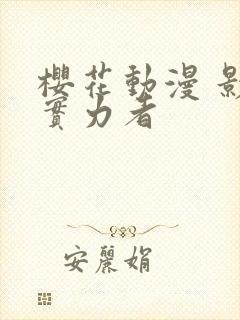 櫻花動漫 影
實力者
安麗娟